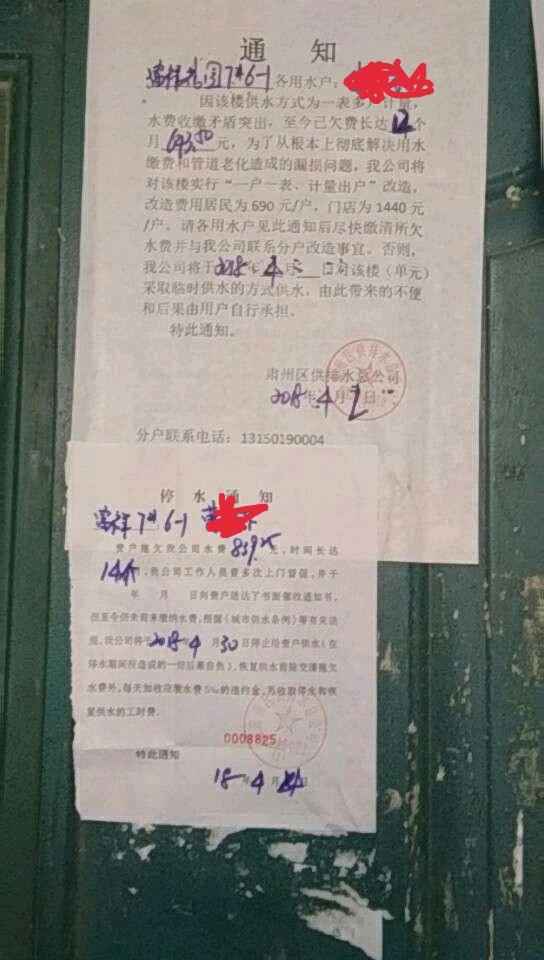 通 知
7#6-1 各用水户：
因该楼供水方式为一表多户计量，
水费收缴矛盾突出，至今已欠费长达 12 个
月 元，为了从根本上彻底解决用水
缴费和管道老化造成的漏损问题，我公司将
对该楼实行“一户一表、计量出户”改造，
改造费用居民为 690 元/户，门店为 1440 元
/户。请各用水户见此通知后尽快缴清所欠
水费并与我公司联系分户改造事宜。否则，
我公司将于2018年4月 日对该楼（单元）
采取临时供水的方式供水，由此带来的不便
和后果由用户自行承担。
特此通知。
肃州区供排水总公司
2018年4月2日
分户联系电话：13150190004
停 水 通 知
7# 6-1
贵户拖欠我公司水费 859.25 元，时间长达
14个，我公司工作人员曾多次上门督促，并于
年 月 日向贵户送达了书面催收通知书，
但至今仍未前来缴纳水费，根据《城市供水条例》等有关法
规，我公司将于2018年4月30日停止给贵户供水（在
停水期间所造成的一切后果自负）。恢复供水前除交清拖欠
水费外，每天加收应缴水费5‰的违约金，另收取停水和恢
复供水的工时费。
0008825
特此通知
18年4月 日